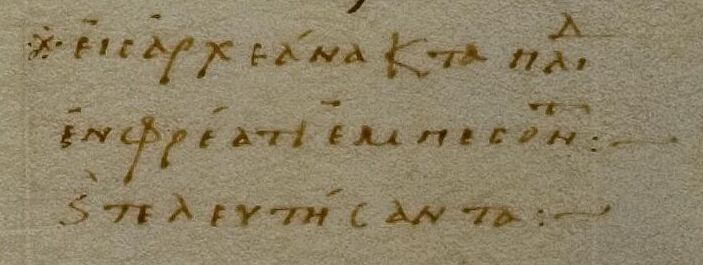 ※ εἰς ἀρχεάνακτα παῖδ
ἐν φρέατι ἐμπεσόντ :—
ϗ τελευτήσαντα :—